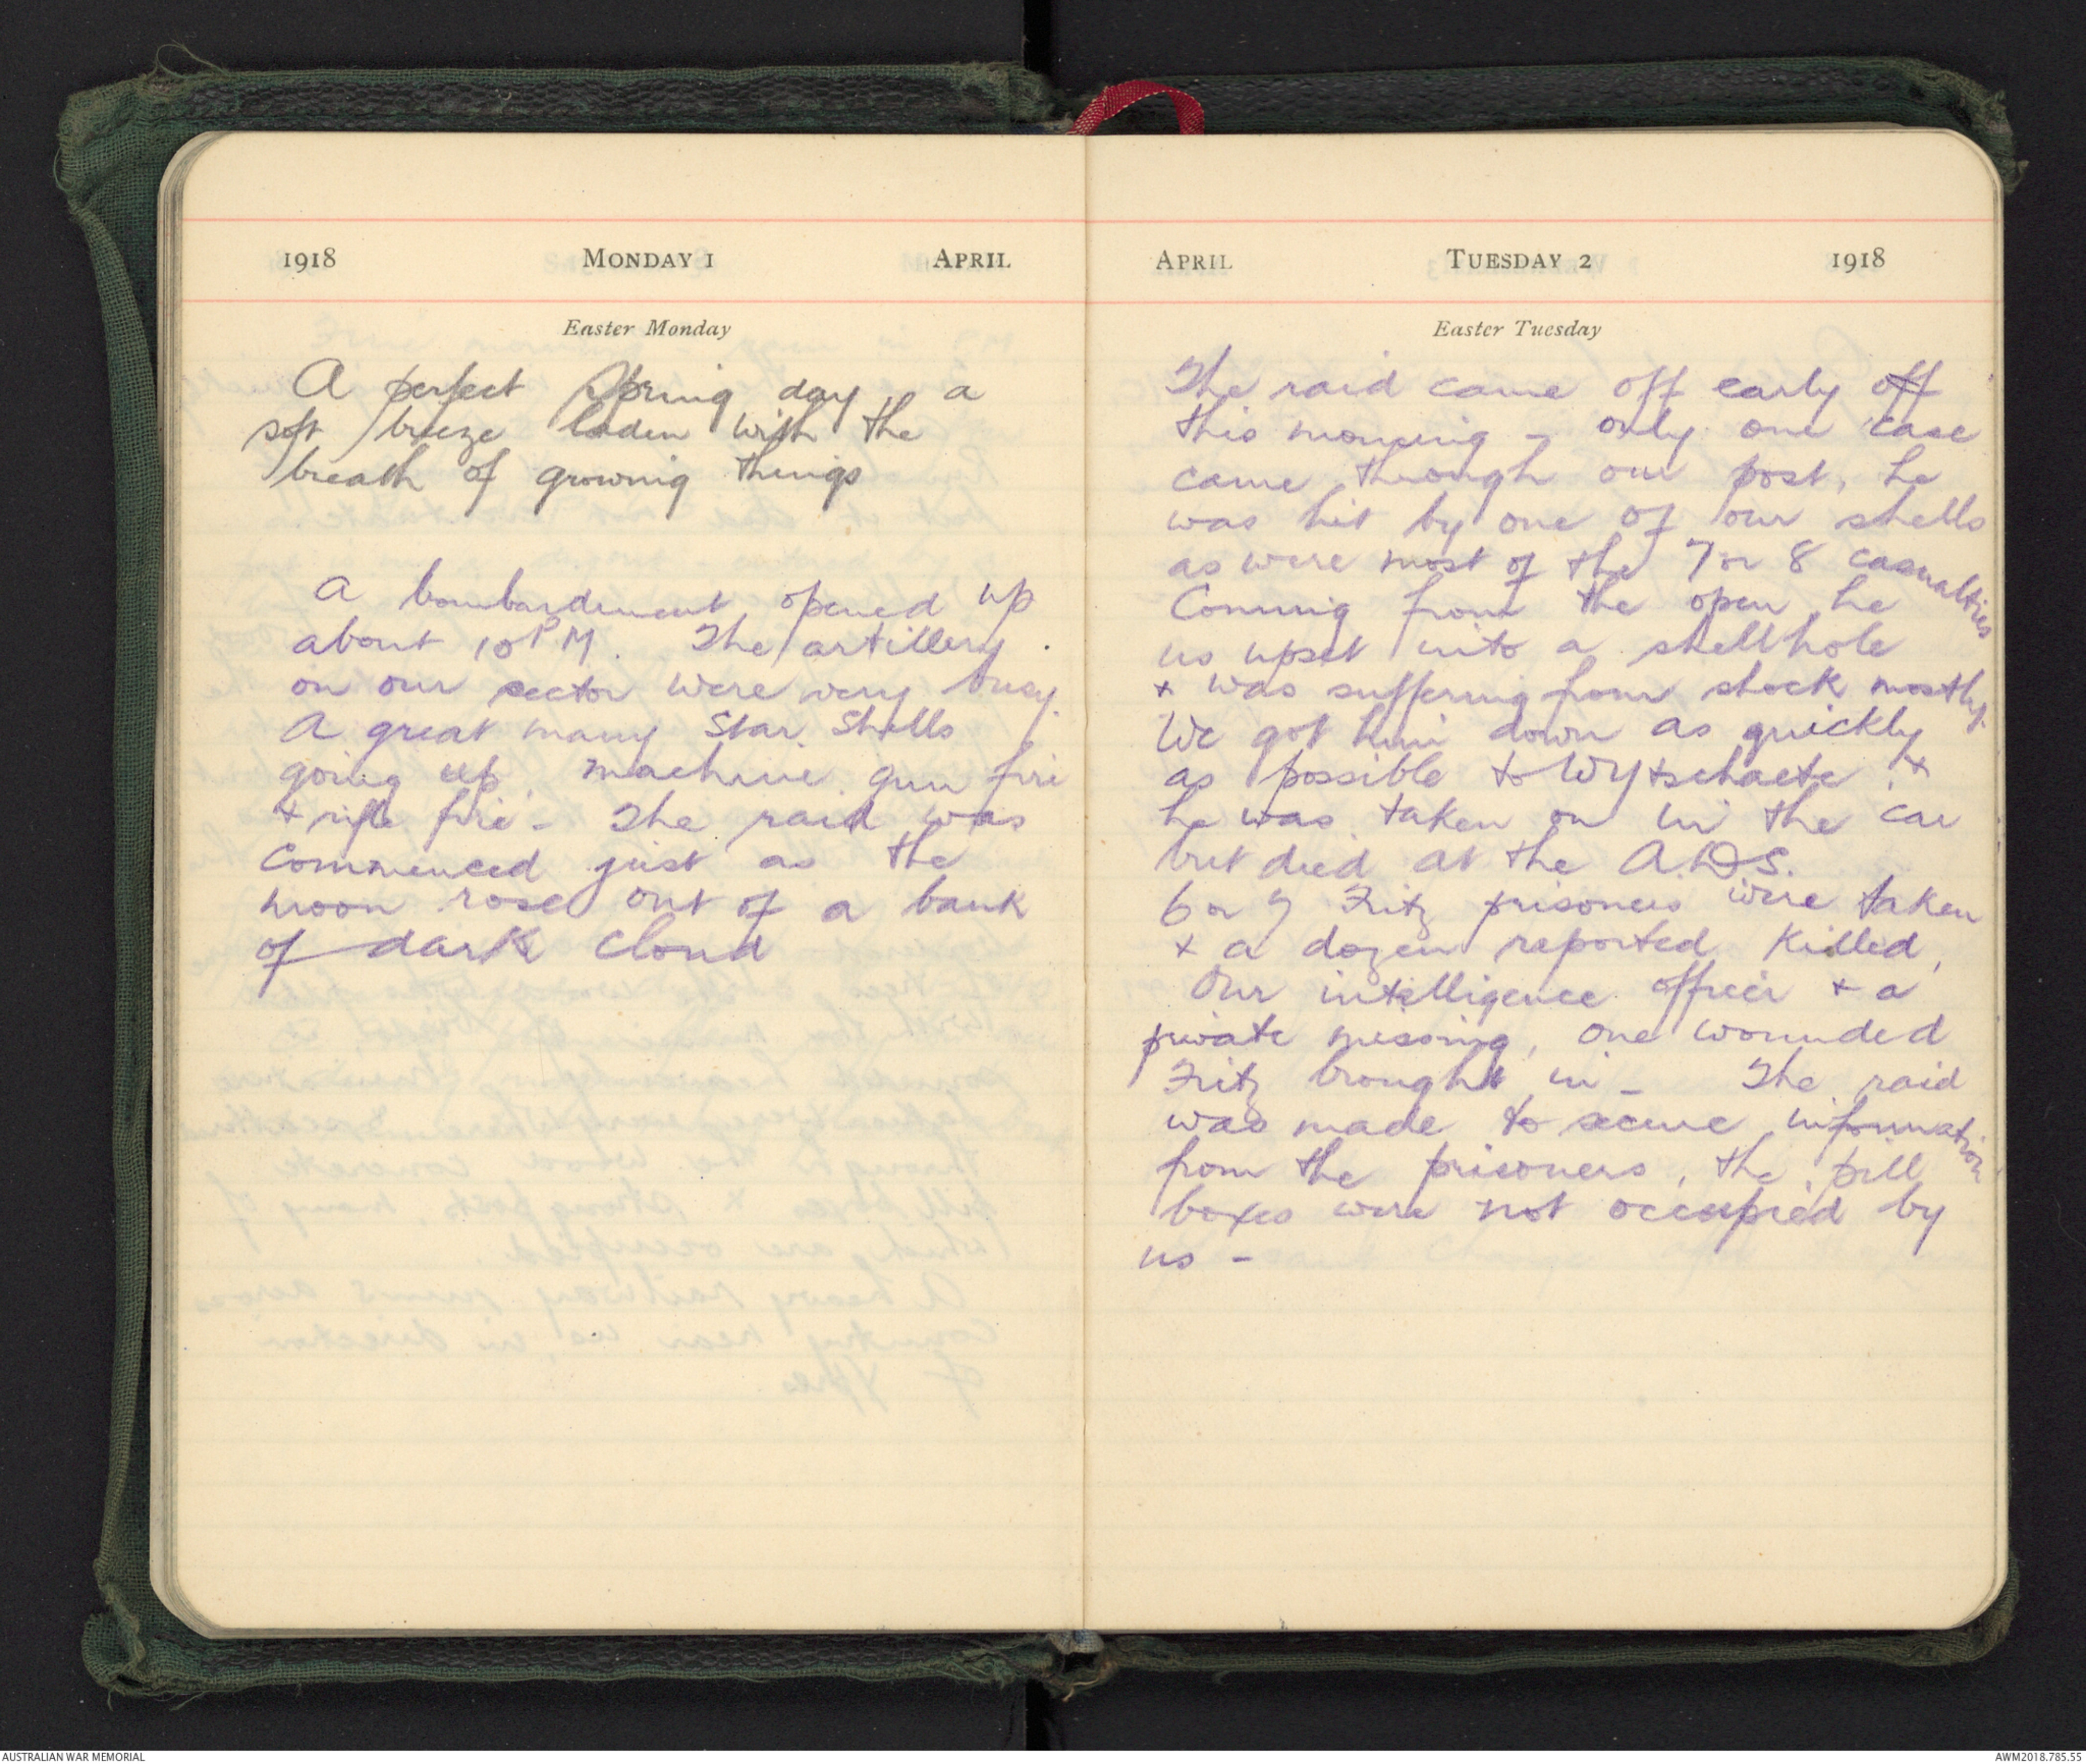 1918 MONDAY 1 APRIL
Easter Monday
A perfect Spring day, a
soft breeze laden with the
breath of growing things
A bombardment opened up
about 10 PM. The artillery
on our sector were very busy.
A great many Star Shells
going up, machine gun fire
+ rifle fire - The raid was
commenced just as the
moon rose out of a bank
of dark cloud
APRIL TUESDAY 2 1918
Easter Tuesday
The raid came off early off
this morning - only one case
came through our post, he
was hit by one of our shells
as were most of the 7 or 8 casualties
Coming from the open he
us upset into a shellhole
+ was suffering from shock mostly.
We got him down as quickly
as possible to Wytschaete +
he was taken on in the car
but died at the A.D.S.
6 or 7 Fritz prisoners were taken
+ a dozen reported killed,
Our intelligence officer + a
private missing, one wounded
Fritz brought in - The raid
was made to secure information
from the prisoners, the pill
boxes were not occupied by
us -
AUSTRALIAN WAR MEMORIAL AWM2018.785.55